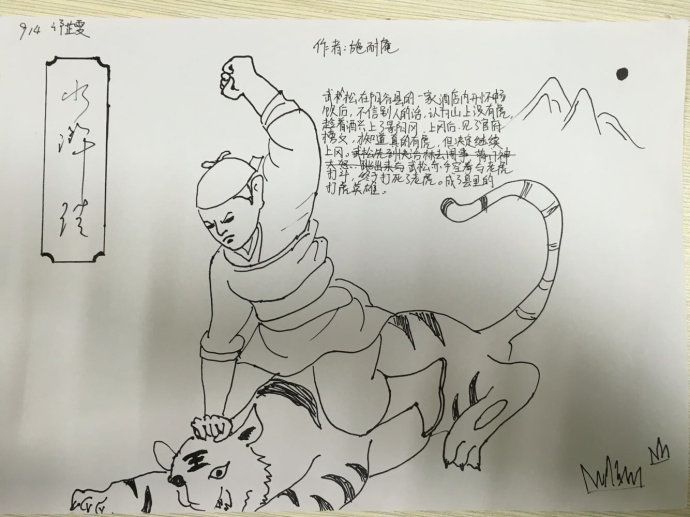 914 许芷雯
水浒传
作者:施耐庵
武松,在阳谷县的一家酒店内开怀畅
饮后,不信别人的话,认为山上没有虎,
趁着酒云上了景阳冈,上冈后,见了官府
榜文,才知道真的有虎,但决定继续
上冈。武松先到快活林去闹事,
武松赤手空拳与老虎
打斗,终于打死了老虎。成了县里的
打虎英雄。
王